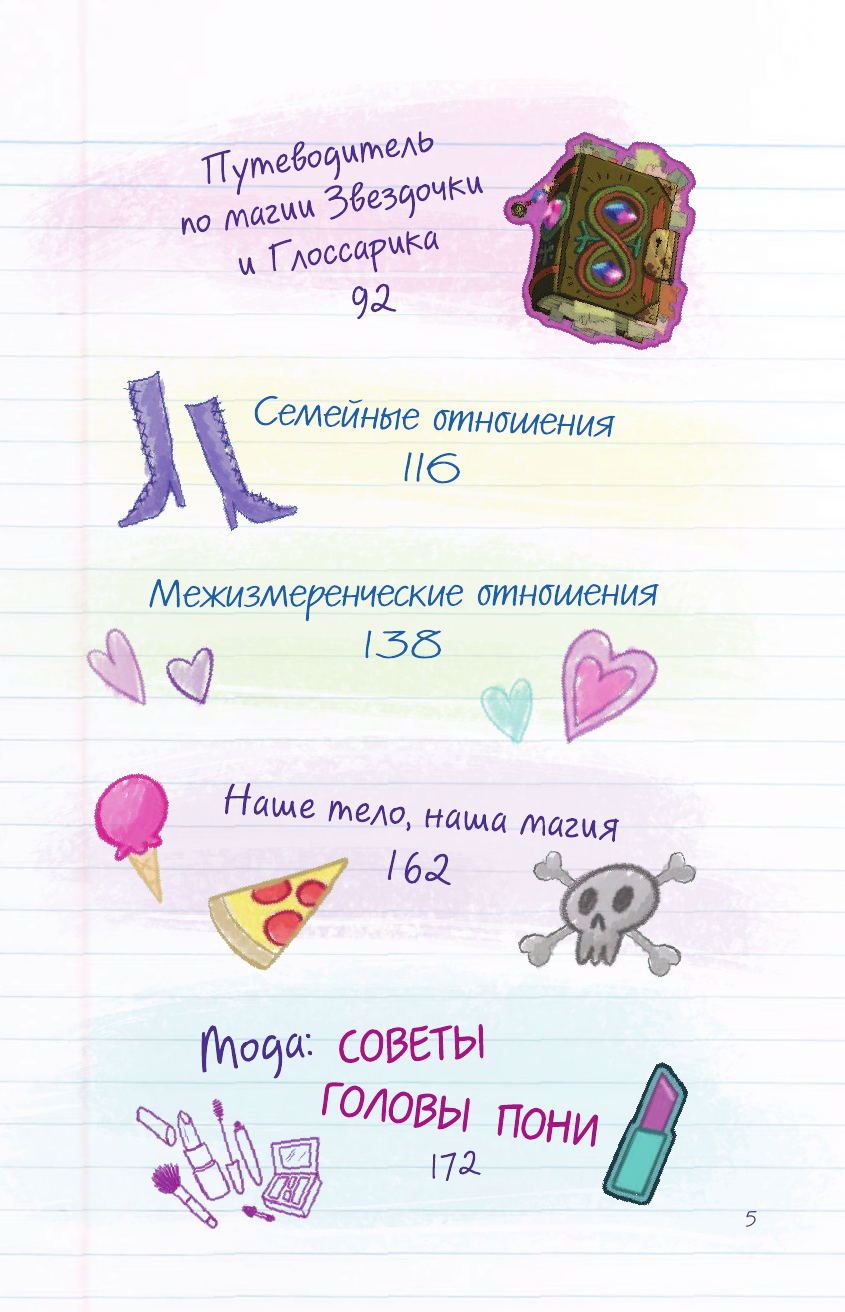 Путеводитель
по магии Звездочки
и Глоссарика
92
Семейные отношения
116
Межизмеренческие отношения
138
Наше тело, наша магия
162
Мода: СОВЕТЫ
ГОЛОВЫ ПОНИ
172
5